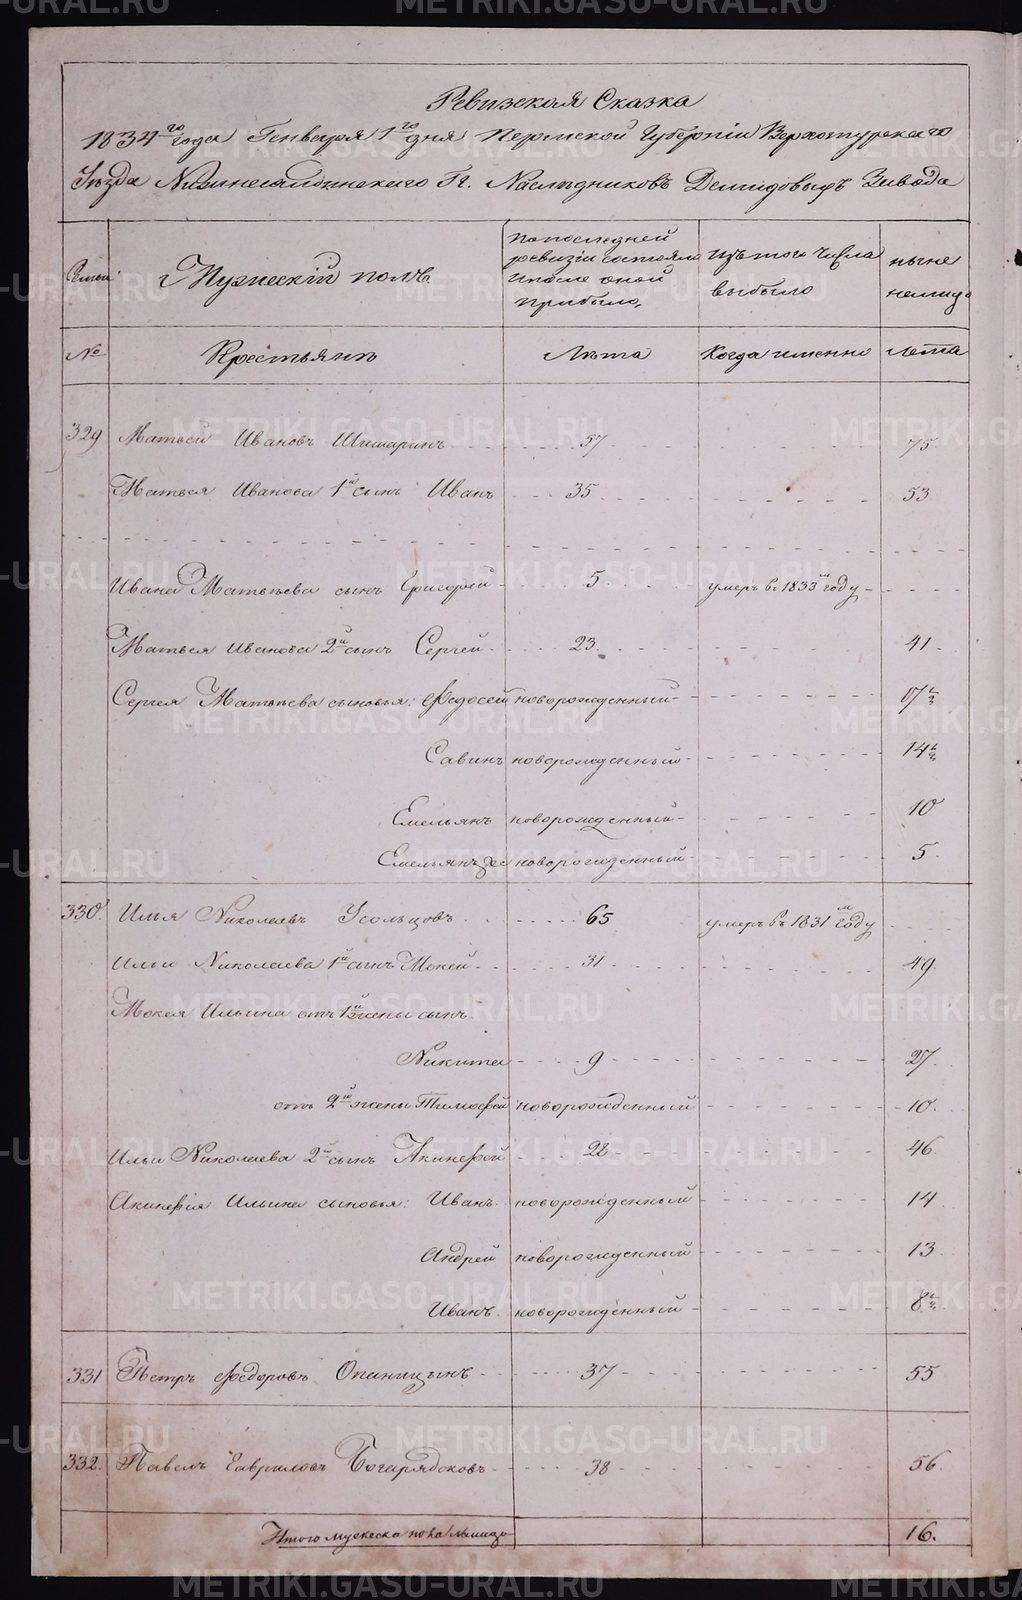 Ревизская Сказка
1834го года Генваря 1го дня Пермской Губернiи Верхотурскаго
Уъзда Нижнесалдинскаго Гг. Наслъдниковъ Демидовыхъ Завода
Семьи
Мужескiй полъ
По последней ревизiи состояло и после оной прибыло,
Изъ того числа выбыло
ныне на лицо
№ Крестьянъ Лъта Когда именно Лета
329 Матвей Ивановъ 57 75
Матвея Иванова 1й сынъ Иванъ 35 53
Ивана Матвъева сынъ Григорей 5 умеръ въ 1833м году
Матвея Иванова 2й сынъ Сергей 23 41
Сергея Матвъева сыновья: Федосей новорожденный 17½
Савинъ новорожденный 14½
Емельянъ новорожденный 10
Емельянъ же новорожденный 5
330 Илья Николаевъ Усольцовъ 65 умеръ въ 1831м году
Ильи Николаева 1й сынъ Мокей 31 49
Мокея Ильина отъ 1й жены сынъ
Никита 9 27
отъ 2й жены Тимофей новорожденный 10
Ильи Николаева 2й сынъ Акинфей 28 46
Акинфия Ильина сыновья: Иванъ новорожденный 14
Андрей новорожденный 13
Иванъ новорожденный 8½
331 Петръ Федоровъ Опаницынъ 37 55
332. Павелъ Гавриловъ 38 56
Итого мужеска пола на лицо 16.
METRIKI.GASO-URAL.RU